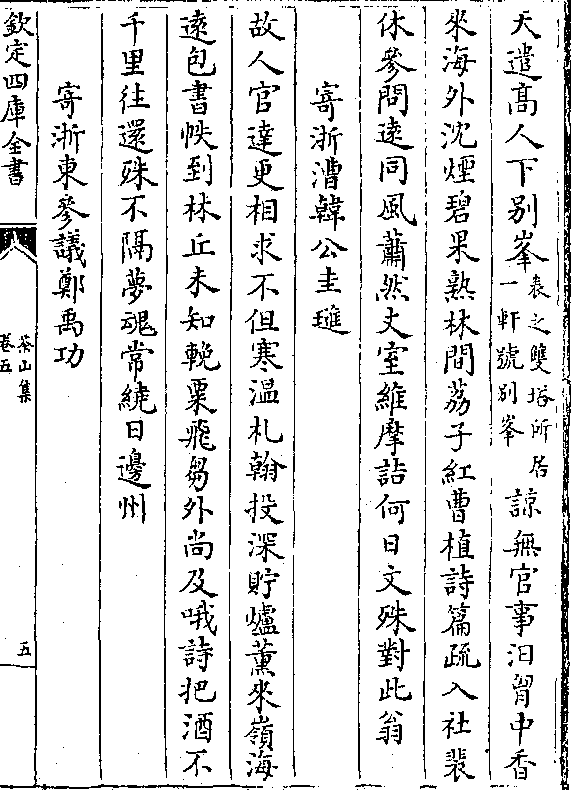 天遣髙人下别峯袁之雙塔所居一軒號别峯諒無官事汩胷中香
來海外沈煙碧果熟林間荔子紅曹植詩篇疏入社裴
休參問逺同風蕭然丈室維摩詰何日文殊對此翁
寄浙漕韓公圭璡
故人官達更相求不但寒温札翰投深貯爐薰來嶺海
逺包書帙到林丘未知輓粟飛芻外尚及哦詩把酒不
千里往還殊不隔夢魂常繞日邊州
寄浙東參議鄭禹功
欽定四庫全書
茶山集
卷五
五